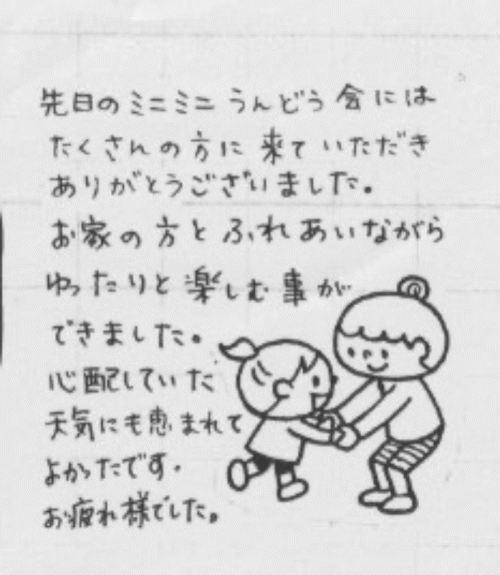 先日のミニミニうんどう会には
たくさんの方に来ていただき
ありがとうございました。
お家の方とふれあいながら
ゆったりと楽しむ事が
できました。
心配していた
天気にも恵まれて
よかったです。
お疲れ様でした。